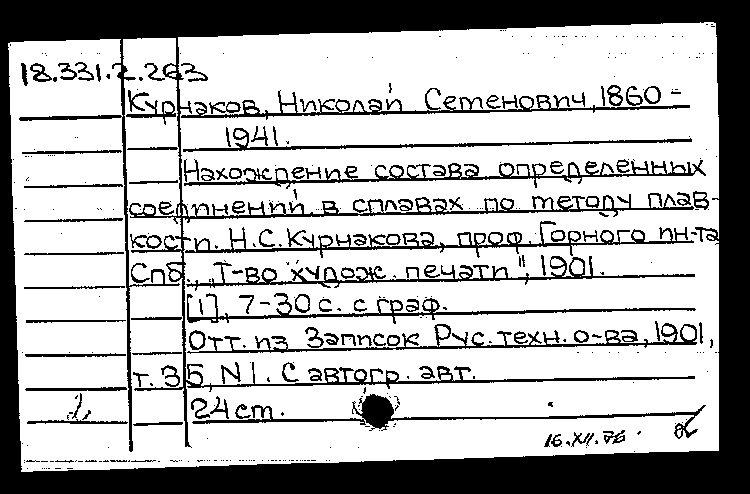 18.331.2.263
Курнаков, Николай Семенович, 1860 -
1941.
Нахождение состава определенных
соединений в сплавах по методу плав-
кости. Н.С.Курнакова, проф. Горного ин-та
Спб., "Т-во худож. печати", 1901.
[1], 7-30 с. с граф.
Отт. из Записок Рус. техн. о-ва, 1901,
т. 35, N 1. С автогр. авт.
2 24 cm.
16.XII.76